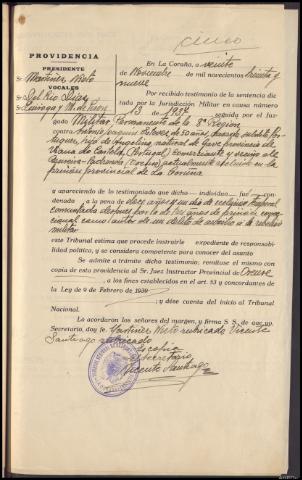 cinco
PROVIDENCIA
PRESIDENTE
Sr. Martinez Nieto
VOCALES
Sr. Del Rio
Sr.
En La Coruña, a veinte
de Noviembre de mil novecientos treinta y
nueve
Por recibido testimonio de la sentencia dic-
tada por la Jurisdicción Militar en causa número
13 de 1937 seguida por el Juz-
gado Militar Permanente de la 8ª Región
contra Antonio Joaquin Esteves de 50 años, casado, subdito Por-
tugues, hijo de Angelina, natural de Gave provincia de
Viana do Castelo (Portugal) comerciante y vecino de
Padrenda (Orense) actualmente recluido en la
prisión provincial de La Coruña
y apareciendo de la testimoniado que dicho individuo fué con-
denado a la pena de diez años y un dia de reclusión temporal
conmutada despues por la de tres años de prisión
como autor de un delito de auxilio a la rebelión
militar
este Tribunal estima que procede instruirle expediente de responsabili-
dad política, y se considera competente para conocer del asunto
Se admite a trámite dicho testimonio; remítase el mismo con
copia de esta providencia al Sr. Juez Instructor Provincial de Orense,
a los fines establecidos en el art. 53 y concordantes de
la Ley de 9 de Febrero de 1939
y dése cuenta del inicio al Tribunal
Nacional.
Lo acordaron los señores del margen, y firma S. S. de que yo,
Secretario, doy fe. Martinez Nieto rubricado Vicente
Santiago rubricado
Es copia
El Secretario
Vicente Santiago